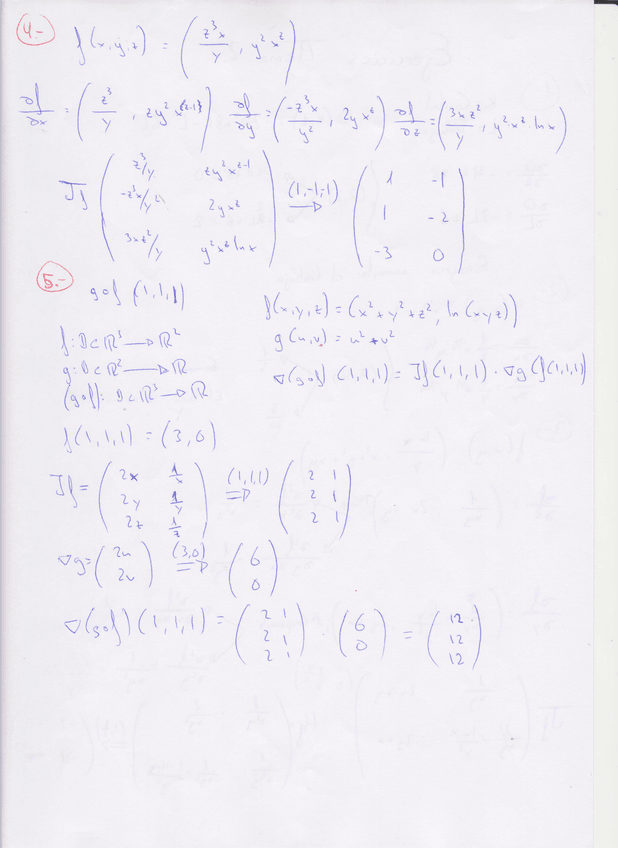 4.-
f(x,y,z) = (z³x/y , y²x^z)
∂f/∂x = (z³/y , zy²x^(z-1)) ∂f/∂y = (-z³x/y² , 2yx^z) ∂f/∂z = (3xz²/y , y²x^z ln x)
Jf (z³/y zy²x^z-1
-z³x/y² 2yx^z
3xz²/y y²x^z ln x) (1,-1,-1) ⟹ (1 -1
1 -2
-3 0)
5.-
gof (1,1,1)
f(x,y,z) = (x²+y²+z², ln(xyz))
g(u,v) = u²+v²
∇(gof)(1,1,1) = Jf(1,1,1) · ∇g(f(1,1,1))
f: D⊂ℝ³ → ℝ²
g: D⊂ℝ² → ℝ
(gof): D⊂ℝ³ → ℝ
f(1,1,1) = (3,0)
Jf = (2x 1/x
2y 1/y
2z 1/z) (1,1,1) ⟹ (2 1
2 1
2 1)
∇g = (2u
2v) (3,0) ⟹ (6
0)
∇(gof)(1,1,1) = (2 1
2 1
2 1) · (6
0) = (12
12
12)